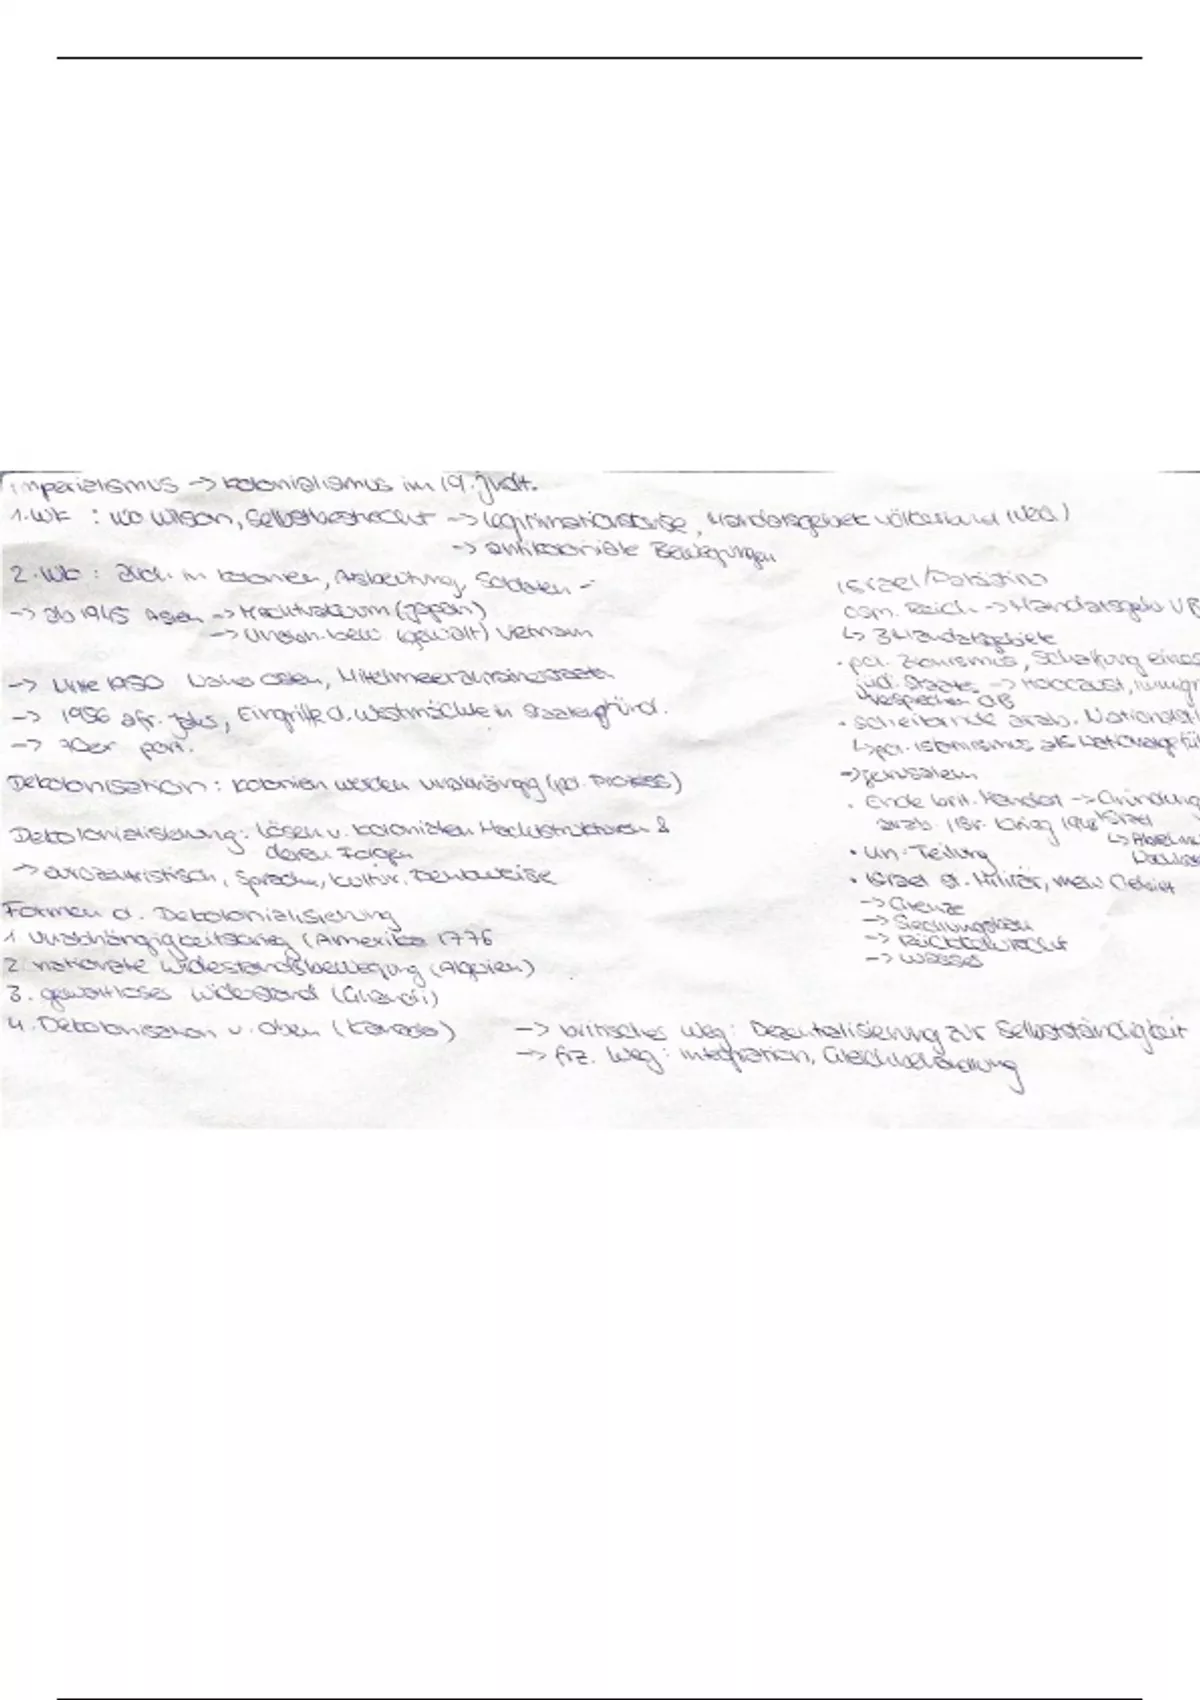 Imperialismus -> Kolonialismus im 19. Jhdt.
1. WK : Wilson, Selbstbestrecht -> Legitimationskrise, Mandatsgebiete Völkerbund
-> antikoloniale Bewegungen
2. WK : auch in Kolonien, Ausbeutung, Soldaten -
-> ab 1945 Asien -> Machtvakuum (Japan)
-> Unabh. bew. (gewalt) Vietnam
-> Mitte 1950 Naher Osten, Mittelmeeranrainerstaaten
-> 1956 afr. Jahr, Eingriffe d. Westmächte in Staatengründ.
-> 70er port.
Dekolonisation : Kolonien werden unabhängig (pol. Prozess)
Dekolonialisierung : Lösen v. kolonialen Machtstrukturen &
deren Folgen
-> eurozentristisch, Sprache, Kultur, Denkweise
Formen d. Dekolonialisierung
1 Unabhängigkeitskrieg (Amerika 1776
2. nationale Widestandsbewegung (Algerien)
3. gewaltloses Widerstand (Ghandi)
4. Dekolonisation v. oben (Kanada)
-> britisches Weg : Dezentralisierung zur Selbstständigkeit
-> frz. Weg : Integration, Gleichbehandlung
Israel/Palästina
Osm. Reich -> Mandatsgeb
↳ 3 Mandatsgebiete
· pol. Zionismus, Schaffung eines
jüd. Staates -> Holocaust, Immigr
Versprechen GB
· scheiternde arab. National
↳ pol. Islamismus als
-> Jerusalem
· Ende brit. Mandat -> Gründung
Israel
arab. Isr. Krieg 1948
· UN-Teilung
· Israel st. Militär, mehr Gebiet
-> Grenze
-> Siedlungsbau
-> Rückkehrrecht
-> Wasser